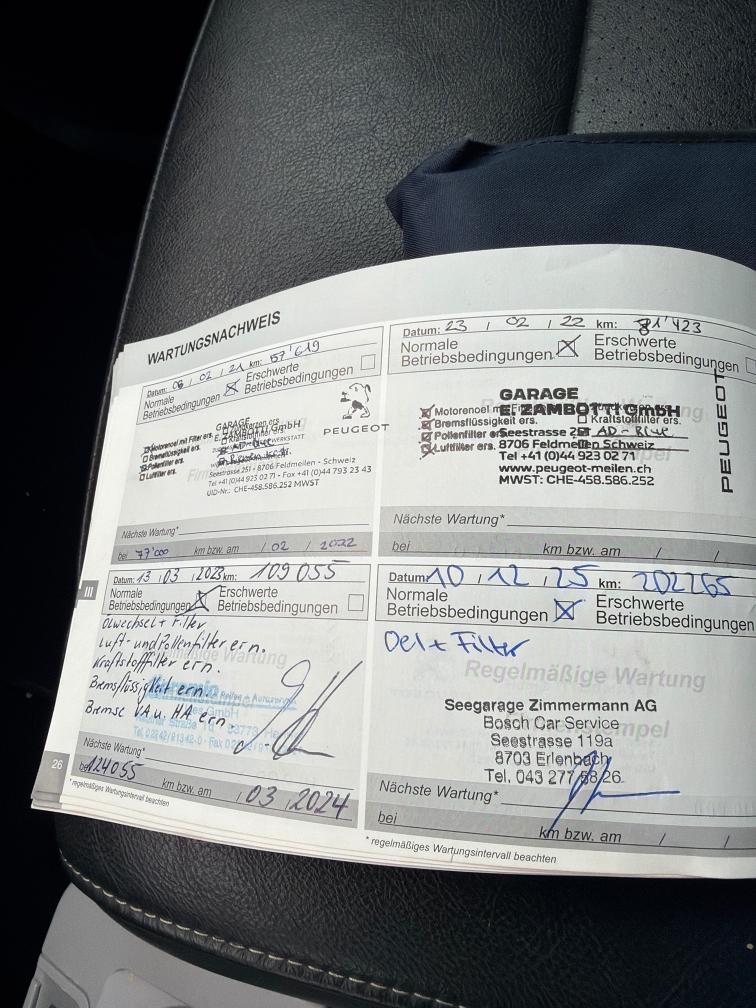 WARTUNGSNACHWEIS
Datum: 06 / 02 / 21 km: 57'619
Normale Betriebsbedingungen
Erschwerte Betriebsbedingungen
GARAGE
E. ZAMBOTTI GmbH
Motorenoel mit Filter ers.
Bremsflüssigkeit ers.
Pollenfilter ers.
Luftfilter ers.
PEUGEOT
Seestrasse 251 - 8706 Feldmeilen - Schweiz
Tel +41 (0)44 923 02 71 - Fax +41 (0)44 793 23 43
UID-Nr.: CHE-458.586.252 MWST
Nächste Wartung*
bei 77'000 km bzw. am / 02 / 2022
Datum: 23 / 02 / 22 km: 81'423
Normale Betriebsbedingungen
Erschwerte Betriebsbedingungen
GARAGE
E. ZAMBOTTI GmbH
Motorenoel mit
Bremsflüssigkeit ers.
Kraftstoffilter ers.
Pollenfilter ers.
Seestrasse 251
AD-Blue
Luftfilter ers.
8706 Feldmeilen Schweiz
Tel +41 (0)44 923 02 71
www.peugeot-meilen.ch
MWST: CHE-458.586.252
PEUGEOT
Nächste Wartung*
bei km bzw. am / /
III
Datum: 13 / 03 / 2023 km: 109 055
Normale Betriebsbedingungen
Erschwerte Betriebsbedingungen
Ölwechsel + Filter
Luft- und Pollenfilter ern.
Kraftstoffilter ern.
Bremsflüssigkeit ern.
Bremse VA u. HA ern.
Nächste Wartung*
bei 124055 km bzw. am / 03 / 2024
26
* regelmäßiges Wartungsintervall beachten
Datum: 10 / 12 / 25 km: 202265
Normale Betriebsbedingungen
Erschwerte Betriebsbedingungen
Oel + Filter
Regelmäßige Wartung
Seegarage Zimmermann AG
Bosch Car Service
Seestrasse 119a
8703 Erlenbach
Tel. 043 277 58 26
Nächste Wartung*
bei km bzw. am / /
* regelmäßiges Wartungsintervall beachten